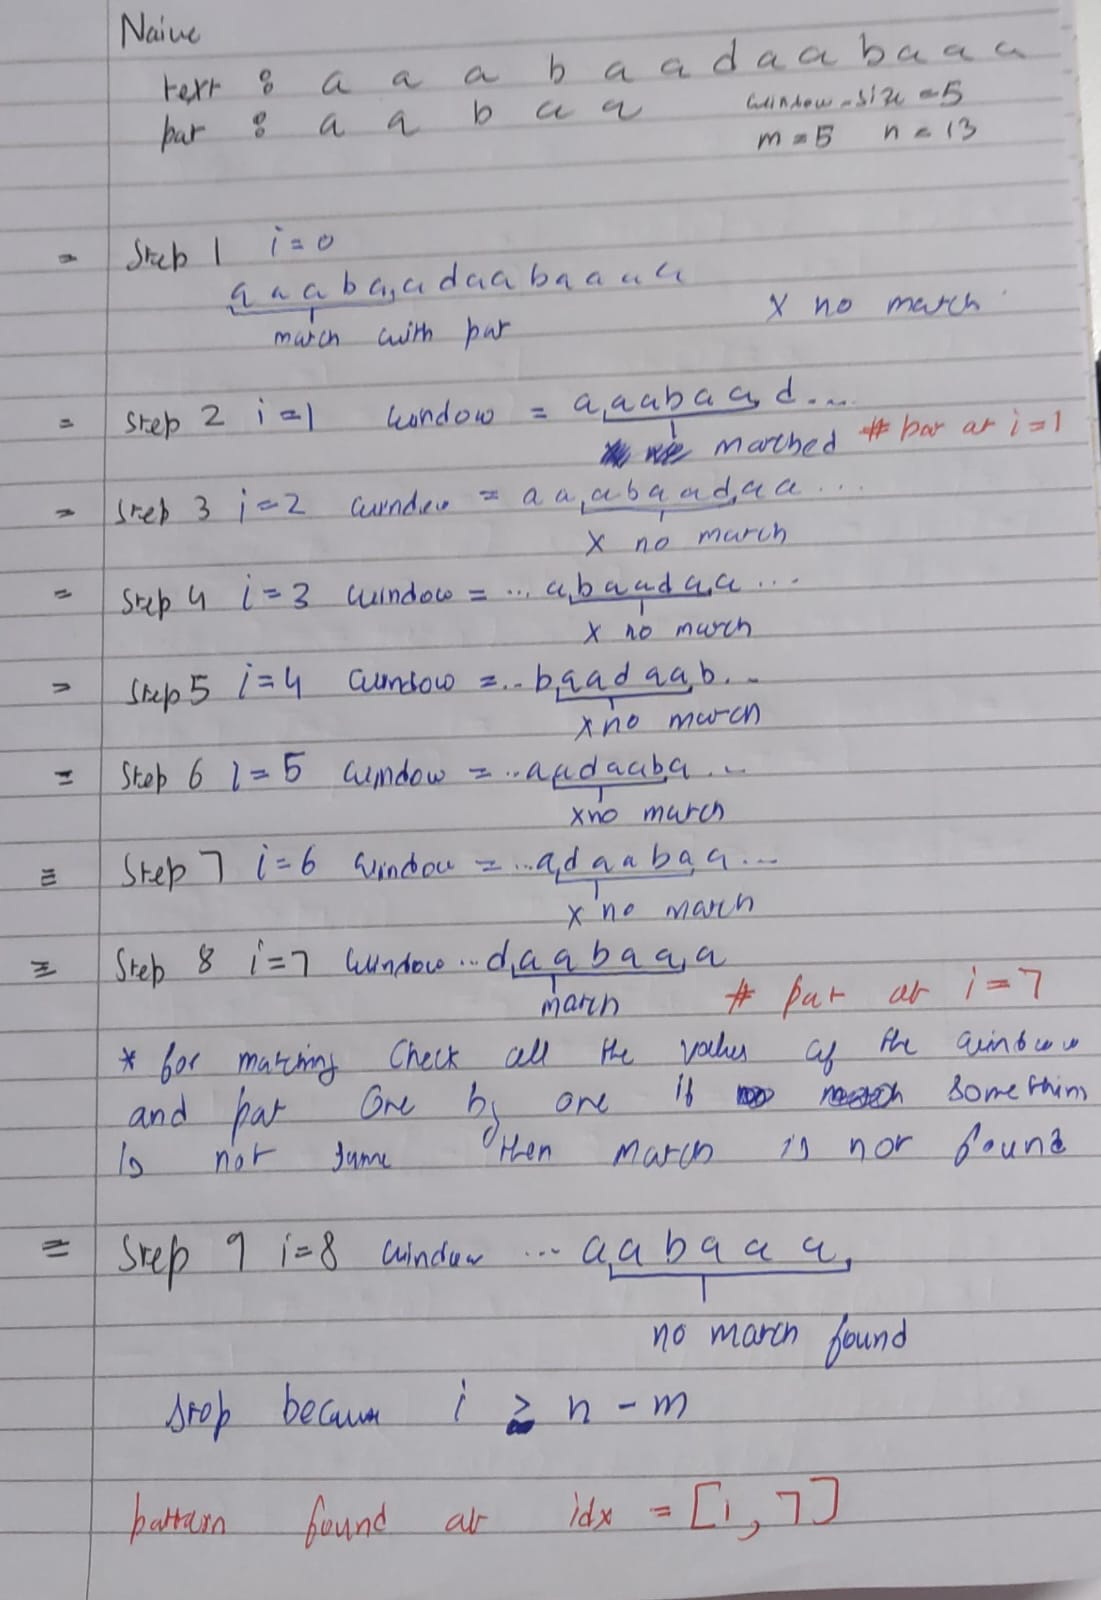 Naive
text : a a a b a a d a a b a a a
pat : a a b a a window-size = 5
m = 5 n = 13
= Step 1 i = 0
a a a b a a d a a b a a a a
match with pat x no match
= Step 2 i = 1 window = a a a b a a d ...
matched # pat at i = 1
= Step 3 i = 2 window = a a a b a a d a a ...
x no match
= Step 4 i = 3 window = ... a b a a d a a ...
x no match
= Step 5 i = 4 window = .. b a a d a a b ..
x no match
= Step 6 i = 5 window = .. a a d a a b a ...
x no match
= Step 7 i = 6 window = ... a d a a b a a ...
x no match
= Step 8 i = 7 window ... d a a b a a a
match # pat at i = 7
* for matching Check all the values of the window
and pat one by one if somethin
is not same then match is not found
= Step 9 i = 8 window ... a a b a a a
no match found
stop because i ≥ n - m
pattern found at idx = [1, 7]